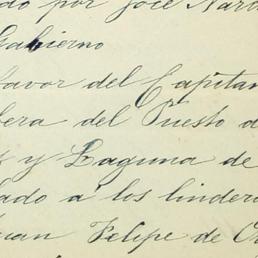 do por José Nar
Gobierno
favor del Capitan
bera del Puesto d
y Laguna de
lado a los lindero
uan Felipe de O